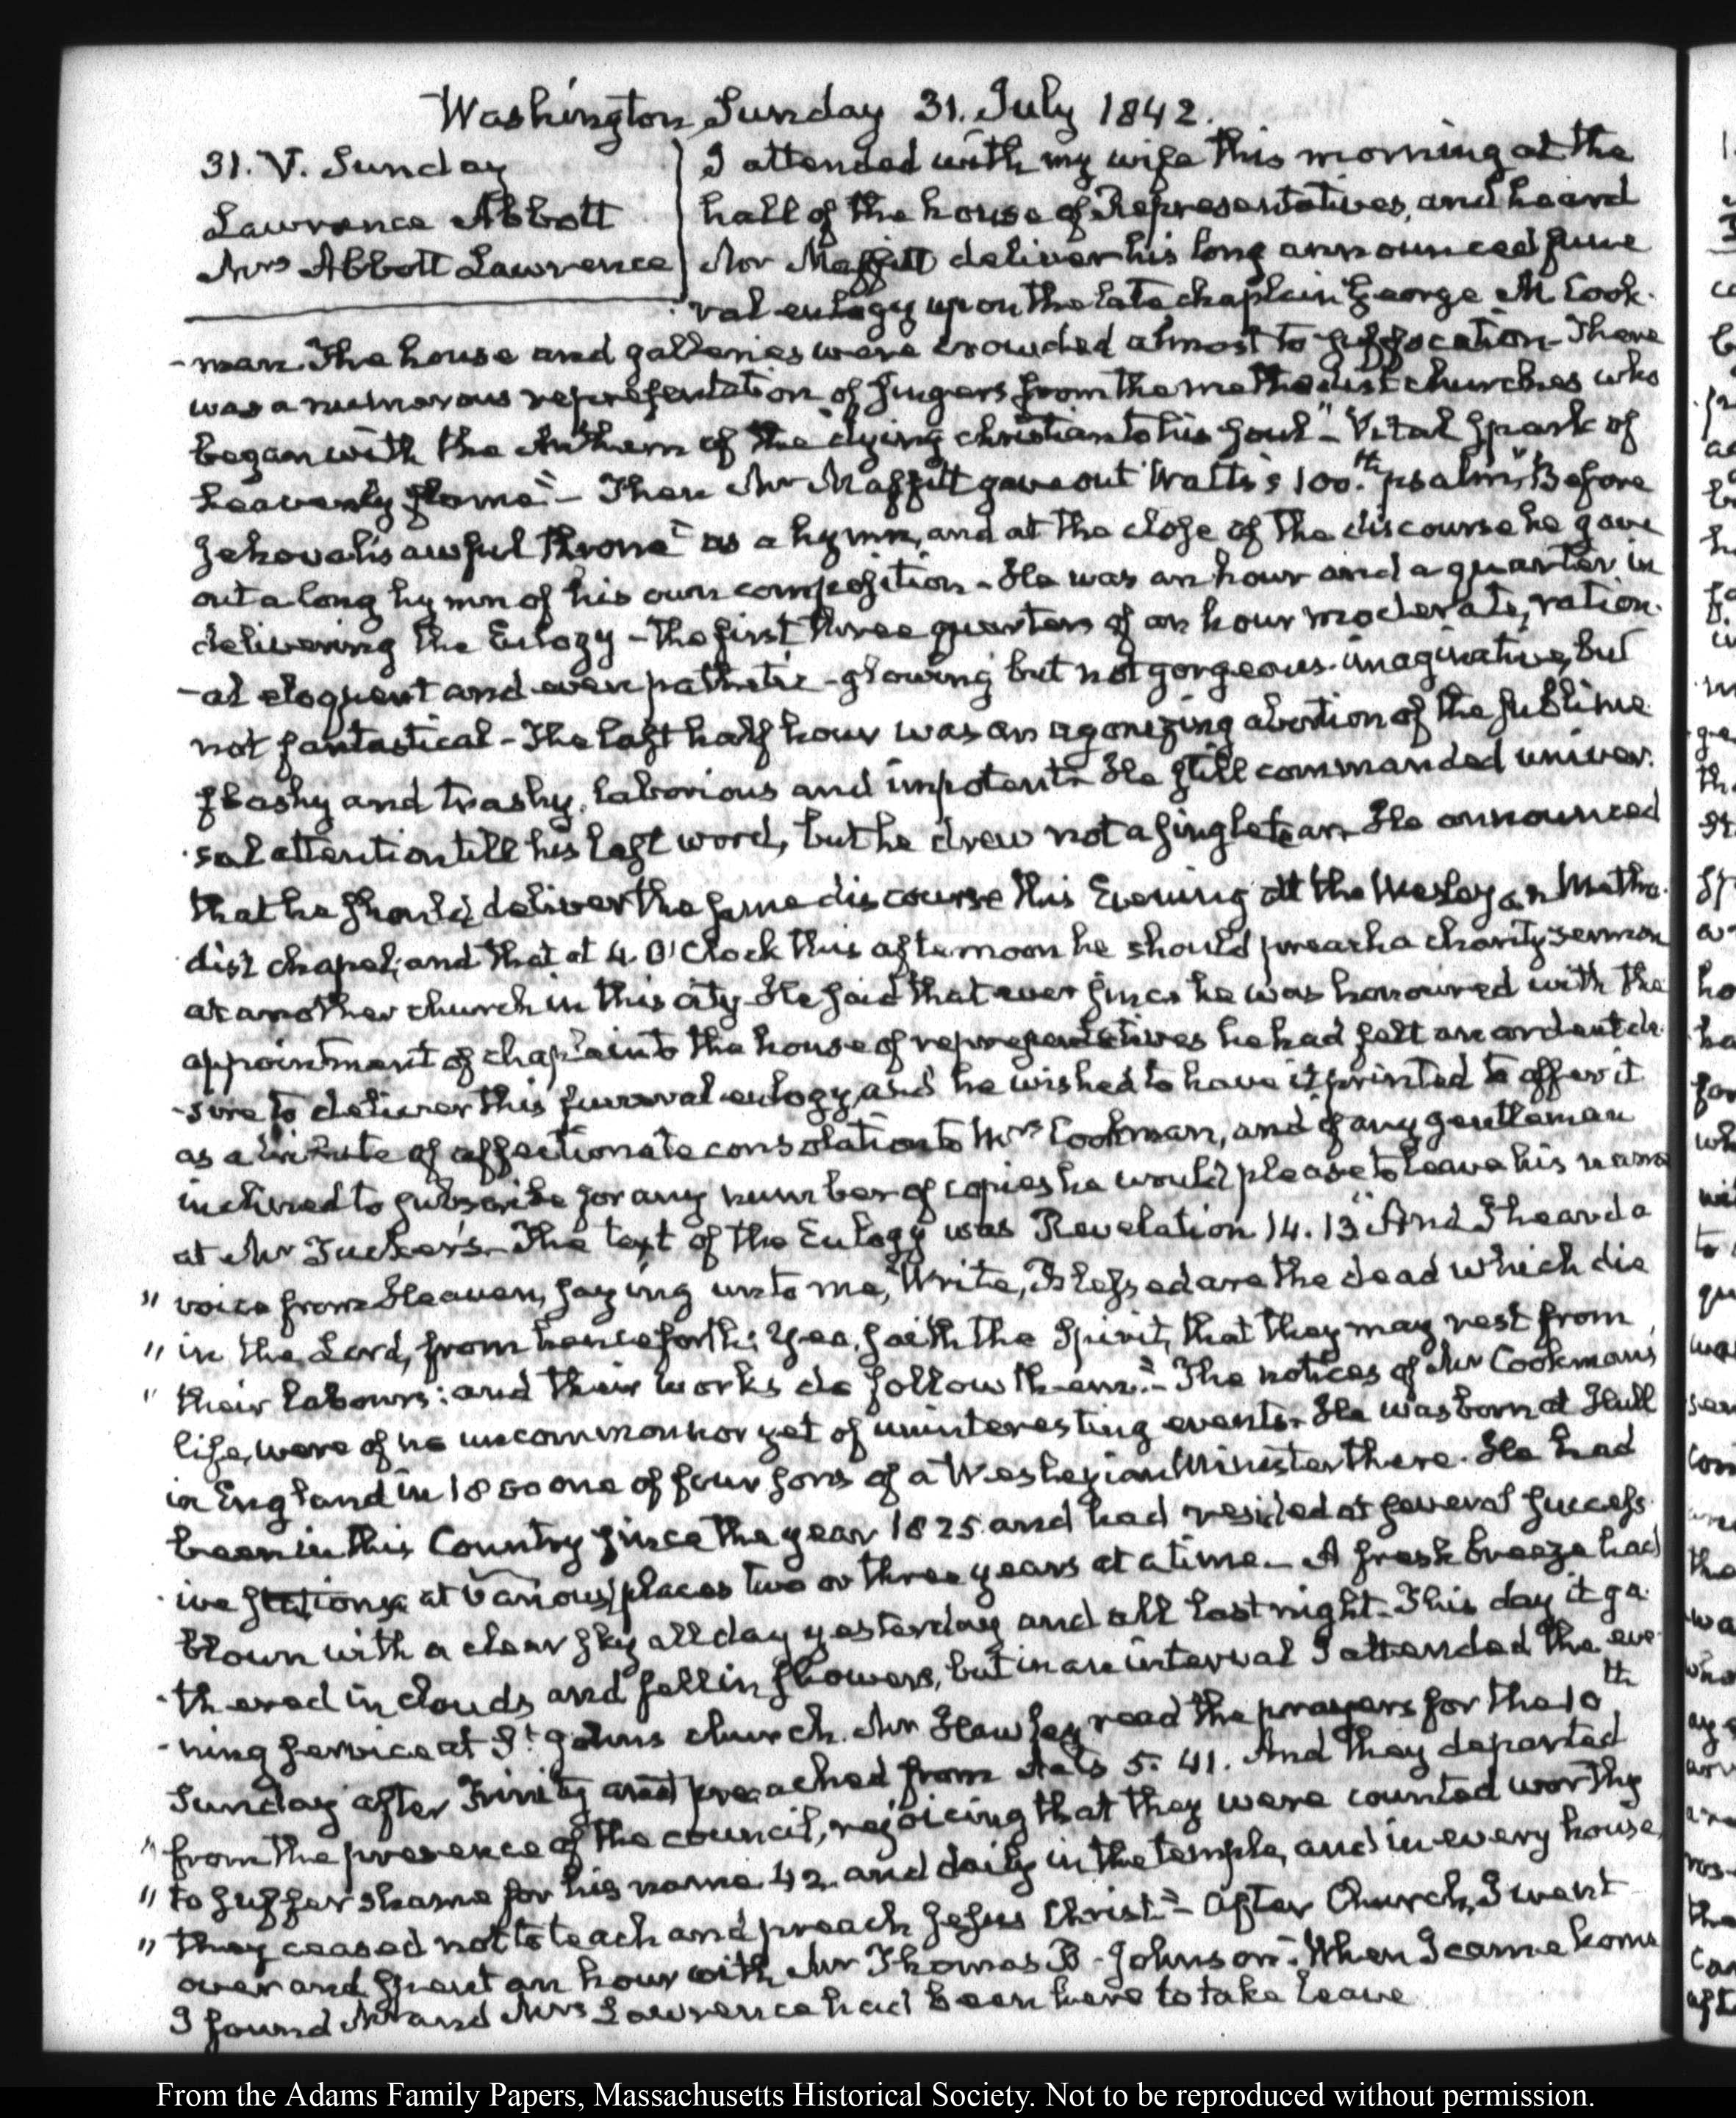 Washington, Sunday 31. July 1842.
31. V. Sunday
Lawrence Abbott
Mrs Abbott Lawrence
I attended with my wife this morning at the
hall of the house of Representatives, and heard
Mr Maffitt deliver his long announced fune
ral eulogy upon the late chaplain George M Cook-
-man. The house and galleries were crowded almost to suffocation. There
was a numerous representation of singers from the methodist churches who
began with the Anthem of the "dying christian to his soul" - "Vital Spark of
heavenly flame" - Then Mr Maffitt gave out Watts's 100.th psalm, "Before
Jehovah's awful throne" as a hymn, and at the close of the discourse he gave
out a long hymn of his own composition - He was an hour and a quarter in
delivering the Eulogy - the first three quarters of an hour moderate, ration-
-al eloquent and even pathetic - glowing but not gorgeous - imaginative, but
not fantastical - The last half hour was an agonizing abortion of the sublime
flashy and trashy, laborious and impotent - He still commanded univer-
-sal attention till his last word, but he drew not a single tear. He announced
that he should deliver the same discourse this Evening at the Wesleyan Metho-
-dist chapel; and that at 4. O'Clock this afternoon he should preach a charity sermon
at another church in this city. He said that ever since he was honoured with the
appointment of chaplain to the house of representatives he had felt an ardent de-
-sire to deliver this funeral eulogy, and he wished to have it printed to offer it
as a tribute of affectionate consolation to Mrs Cookman, and if any gentleman
inclined to subscribe for any number of copies he would please to leave his name
at Mr Tucker's - The text of the Eulogy was Revelation 14.13 "And I heard a
" voice from Heaven, saying unto me, Write, Blessed are the dead which die
" in the Lord, from henceforth: Yea, saith the Spirit, that they may rest from
" their labours: and their works do follow them." - The notices of Mr Cookman's
life, were of no uncommon nor yet of uninteresting events. He was born at Hull
in England in 1800 one of four sons of a Wesleyian Minister there. He had
been in this Country since the year 1825 and had resided at several success-
-ive stations at various places two or three years at a time - A fresh breeze had
blown with a clear sky all day yesterday and all last night - This day it ga-
-thered in clouds and fell in showers, but in an interval I attended the eve-
-ning service at St. Johns church. Mr Hawley read the prayers for the 10th
Sunday after Trinity and preached from Acts 5. 41. And they departed
" from the presence of the council, rejoicing that they were counted worthy
" to suffer shame for his name. 42. and daily in the temple, and in every house,
" they ceased not to teach and preach Jesus Christ" - After Church, I went
over and spent an hour with Mr Thomas B. Johnson. When I came home
I found Mr and Mrs Lawrence had been here to take leave
From the Adams Family Papers, Massachusetts Historical Society. Not to be reproduced without permission.